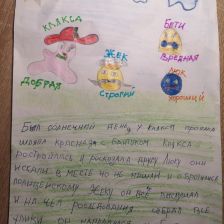 КЛЯКСА
БЕТИ
ВРЕДНАЯ
ЖЕК
ЛЮК
ДОБРАЯ
СТРОГИЙ
ХОРОШИЙ
БЫЛ СОЛНЕЧНЫЙ ДЕНЬ, У КЛЯКСЫ ПРОПАЛА
ШЛЯПА КРАСНАЯ С БАНТИКОМ КЛЯКСА
РАССТРОИЛАСЬ И РАССКАЗАЛА ДРУГУ ЛЮКУ ОНИ
ИСКАЛИ В МЕСТЕ НО НЕ НАШЛИ И ОБРАТИЛИСЬ
ПОЛИЦЕЙСКОМУ ЖЕКУ ОН ВСЁ
И НАЧАЛ РАССЛЕДОВАНИЕ СОБРАЛ ВСЕ
УЛИКИ ОН